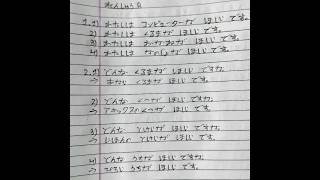 れんしゅう B
1. 1) わたしは コンピューターが ほしいです。
2) わたしは くるまが ほしいです。
3) わたしは おかねが ほしいです。
4) わたしは ほしいです。
2. 1) どんな くるまが ほしいですか。
→ くるまが ほしいです。
2) どんな くつが ほしいですか。
→ くつが ほしいです。
3) どんな とけいが ほしいですか。
→ にほんの とけいが ほしいです。
4) どんな うちが ほしいですか。
→ ひろい うちが ほしいです。